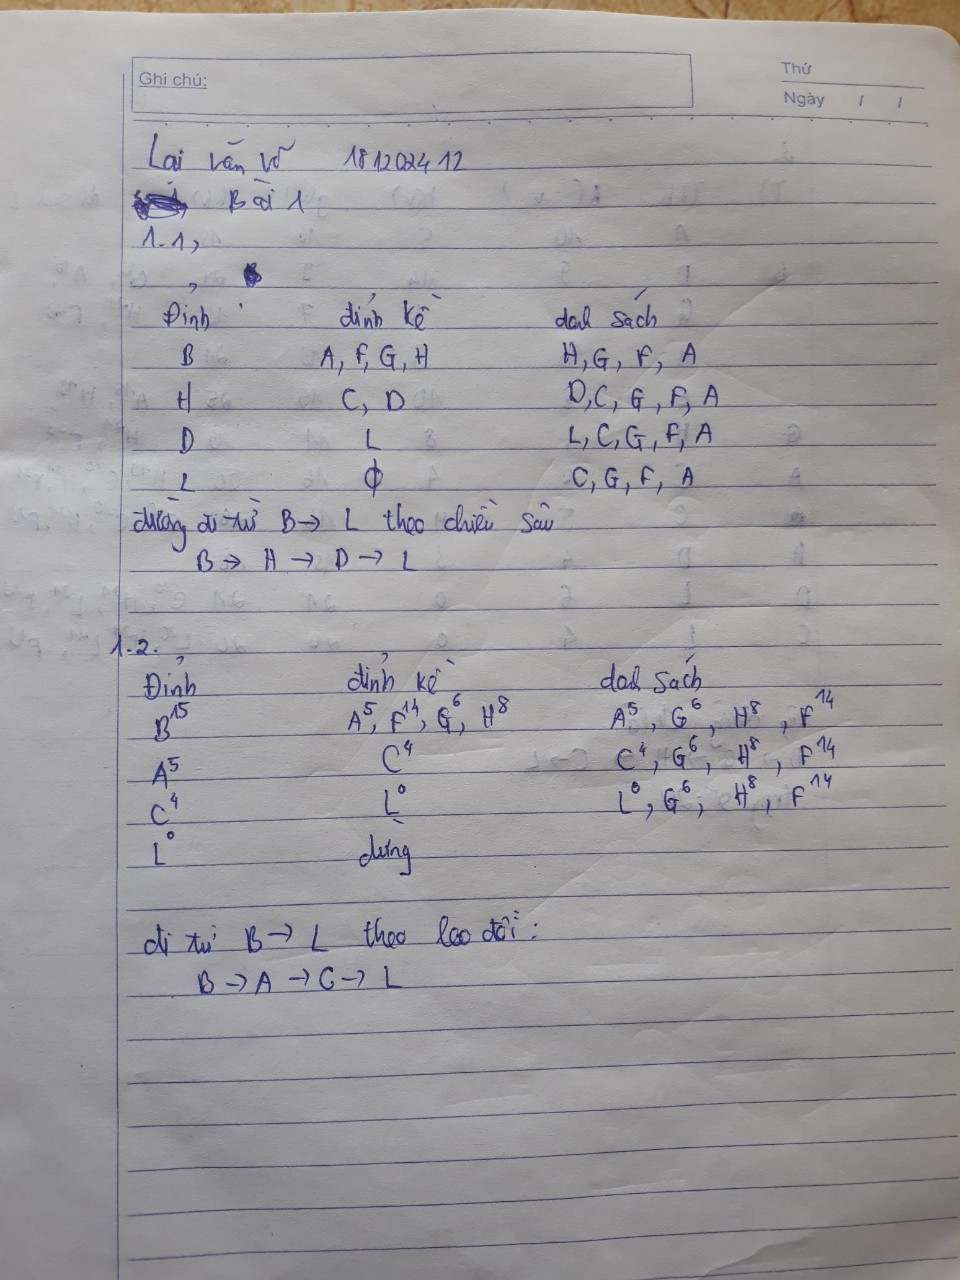 Ghi chú:
Thứ
Ngày / /
Lai văn vỡ 1812024 12
Bài 1
1.1,
Đỉnh đỉnh kề dah sách
B A, F, G, H H, G, F, A
H C, D D, C, G, F, A
D L L, C, G, F, A
L ϕ C, G, F, A
đường đi từ B → L theo chiều sâu
B → H → D → L
1.2.
Đỉnh đỉnh kề dah sách
B¹⁵ A⁵, F¹⁴, G⁶, H⁸ A⁵, G⁶, H⁸, F¹⁴
A⁵ C⁴ C⁴, G⁶, H⁸, F¹⁴
C⁴ L⁰ L⁰, G⁶, H⁸, F¹⁴
L⁰ dừng
đi từ B → L theo leo đồi:
B → A → C → L